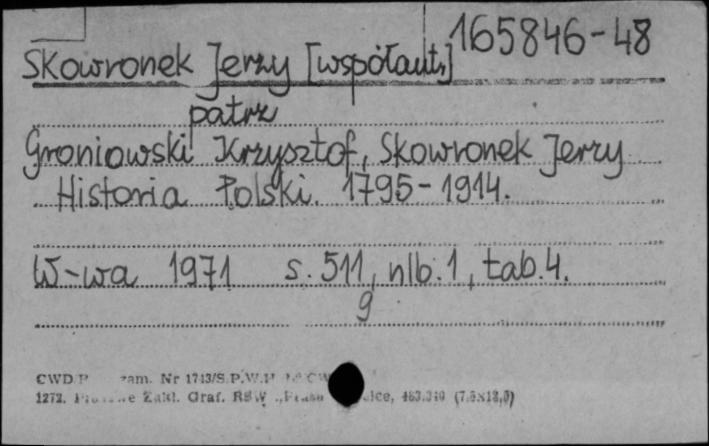 165846-48
Skowronek Jerzy [współaut.]
patrz
Groniowski Krzysztof, Skowronek Jerzy
Historia Polski. 1795-1914.
W-wa 1971 s. 511, nlb. 1, tab. 4.
g
CWD zam. Nr 1743/S.P.W.H
1272. Zakł. Graf. RSW „Prasa 463.340 (7,5×12,5)